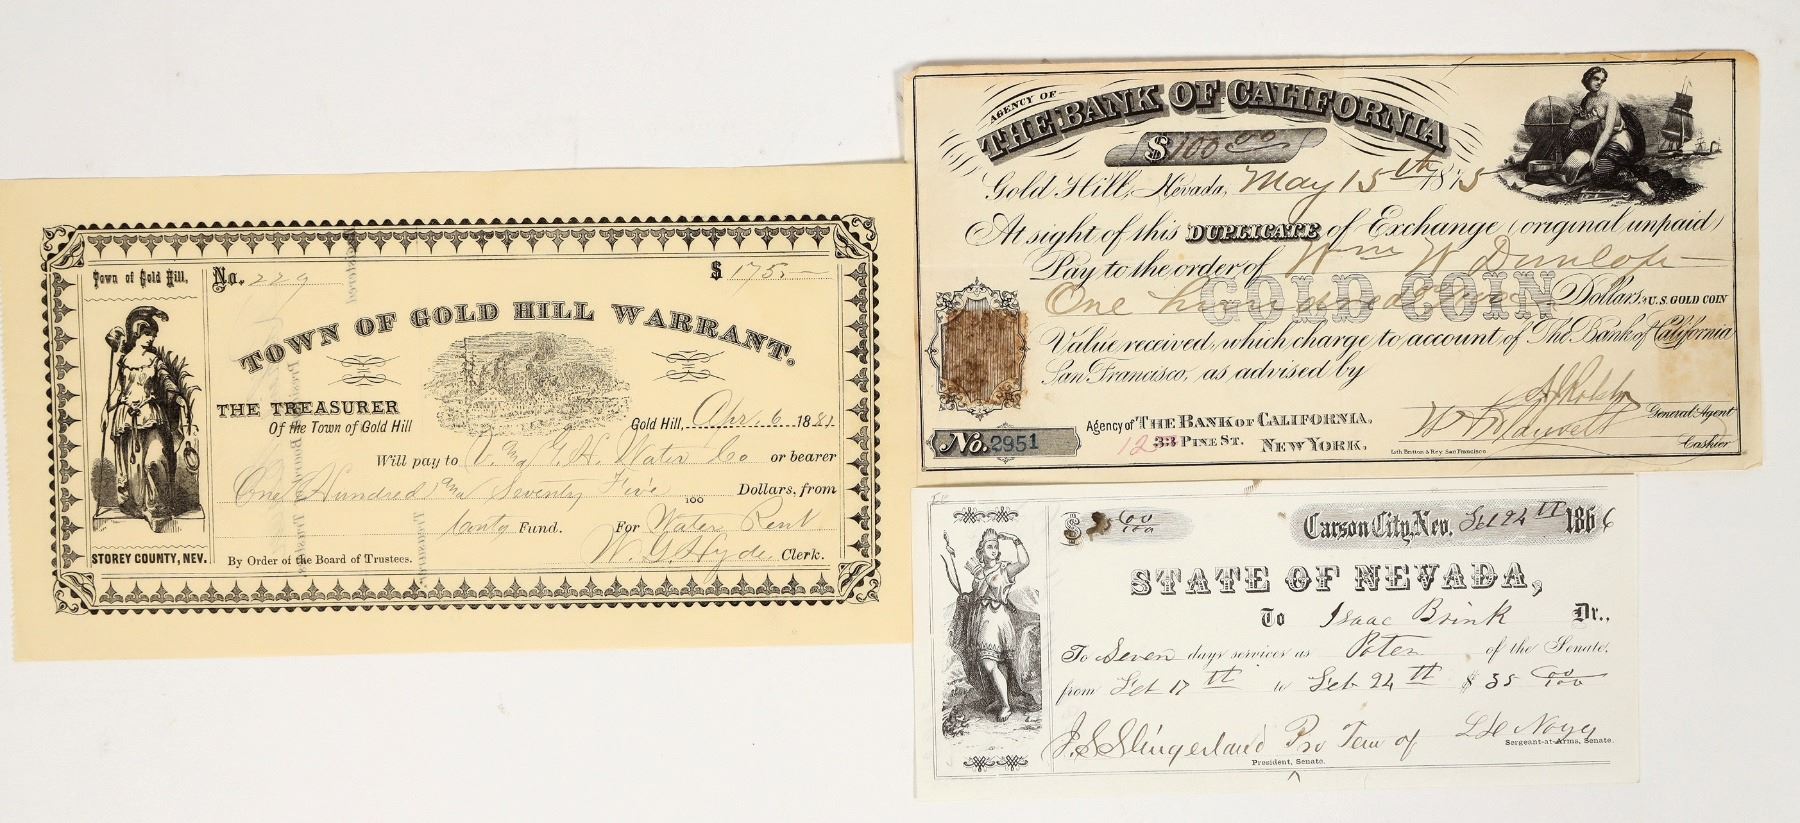 Town of Gold Hill,
STOREY COUNTY, NEV.
No. 229
$ 175.—
TOWN OF GOLD HILL WARRANT.
THE TREASURER
Of the Town of Gold Hill
Gold Hill, Apr. 6 1881
Will pay to V. and G. H. Water Co or bearer
One Hundred and Seventy Five 100 Dollars, from
Fund. For Water Rent
By Order of the Board of Trustees. W. G. Hyde Clerk.
AGENCY OF
THE BANK OF CALIFORNIA
$ 100 00
Gold Hill, Nevada, May 15th 1875
At sight of this DUPLICATE of Exchange (original unpaid)
Pay to the order of Wm W Dunlop
GOLD COIN
One hundred Dollars, U.S. GOLD COIN
Value received, which charge to account of The Bank of California
San Francisco, as advised by
General Agent
Agency of THE BANK OF CALIFORNIA,
12 33 PINE ST. NEW YORK.
Cashier
No. 2951
Lith Britton & Rey San Francisco
$ 00/100
Carson City, Nev. Feb 24th 1866
STATE OF NEVADA,
To Isaac Brink Dr.,
To Seven days services as Poter of the Senate,
from Feb 17th to Feb 24th $ 35 00/100
J. S. Slingerland Pro Tem of
President, Senate.
Sergeant-at-Arms, Senate.